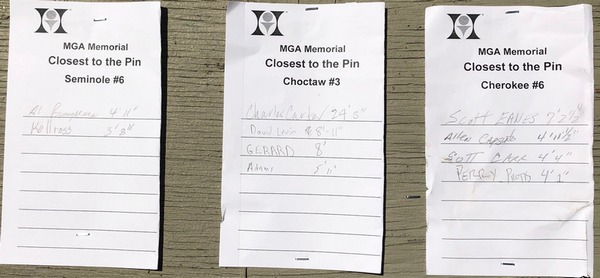 MGA Memorial
Closest to the Pin
Seminole #6
Al 4' 11"
3' 8"
MGA Memorial
Closest to the Pin
Choctaw #3
Charles Carter 24' 5"
David 8'-11"
GERARD 8'
Adams 5' 11"
MGA Memorial
Closest to the Pin
Cherokee #6
SCOTT EANES 7' 2 1/2"
Allen 4' 11 1/2"
SCOTT 4' 4"
PERRY 4' 1"